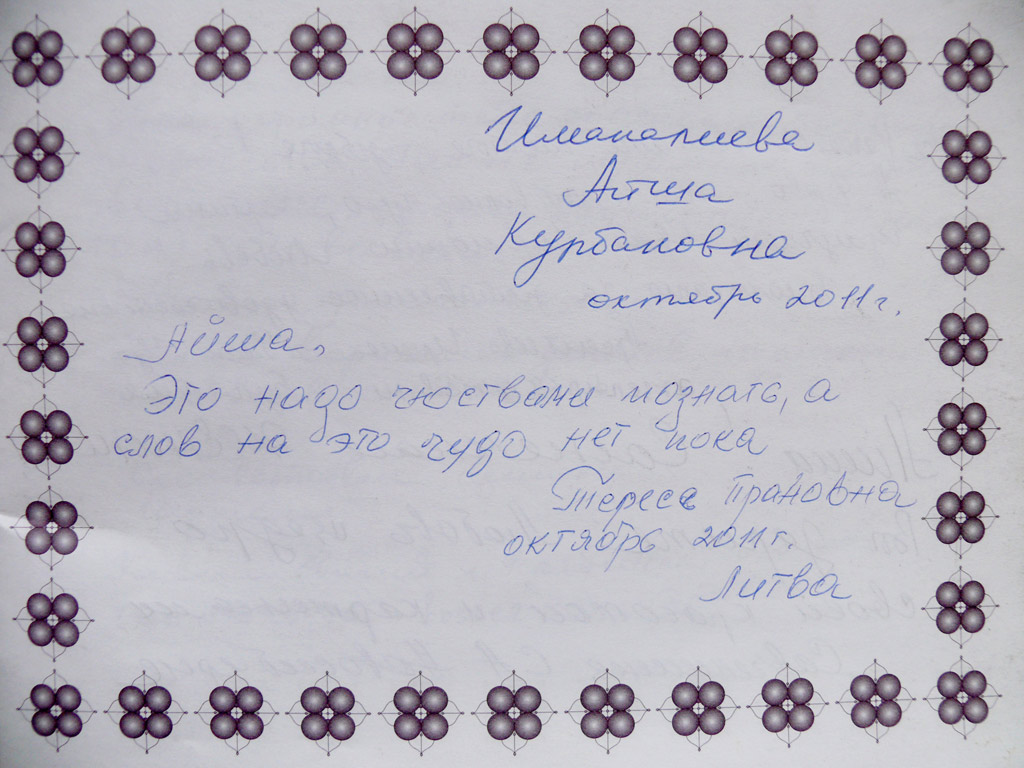 Иманалиева
Айша
Курбановна
октябрь 2011г.
Айша,
Это надо чюствами познать, а
слов на это чудо нет пока
Тереса Прановна
октябрь 2011г.
Литва